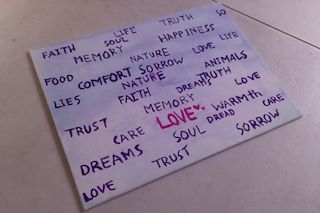 LIFE TRUTH SO
FAITH SOUL HAPPINESS
MEMORY NATURE LOVE LIFE
FOOD COMFORT SORROW ANIMALS
NATURE TRUTH
LIES FAITH DREAMS LOVE
MEMORY WARMTH CARE
TRUST LOVE DREAD
CARE SOUL SORROW
DREAMS TRUST
LOVE